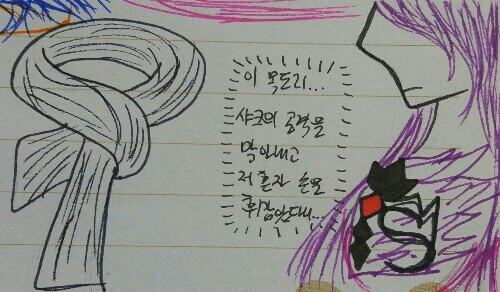 이 목도리...
샤크의 공격을
막아내고
저 혼자 손을
휘감았대...
S